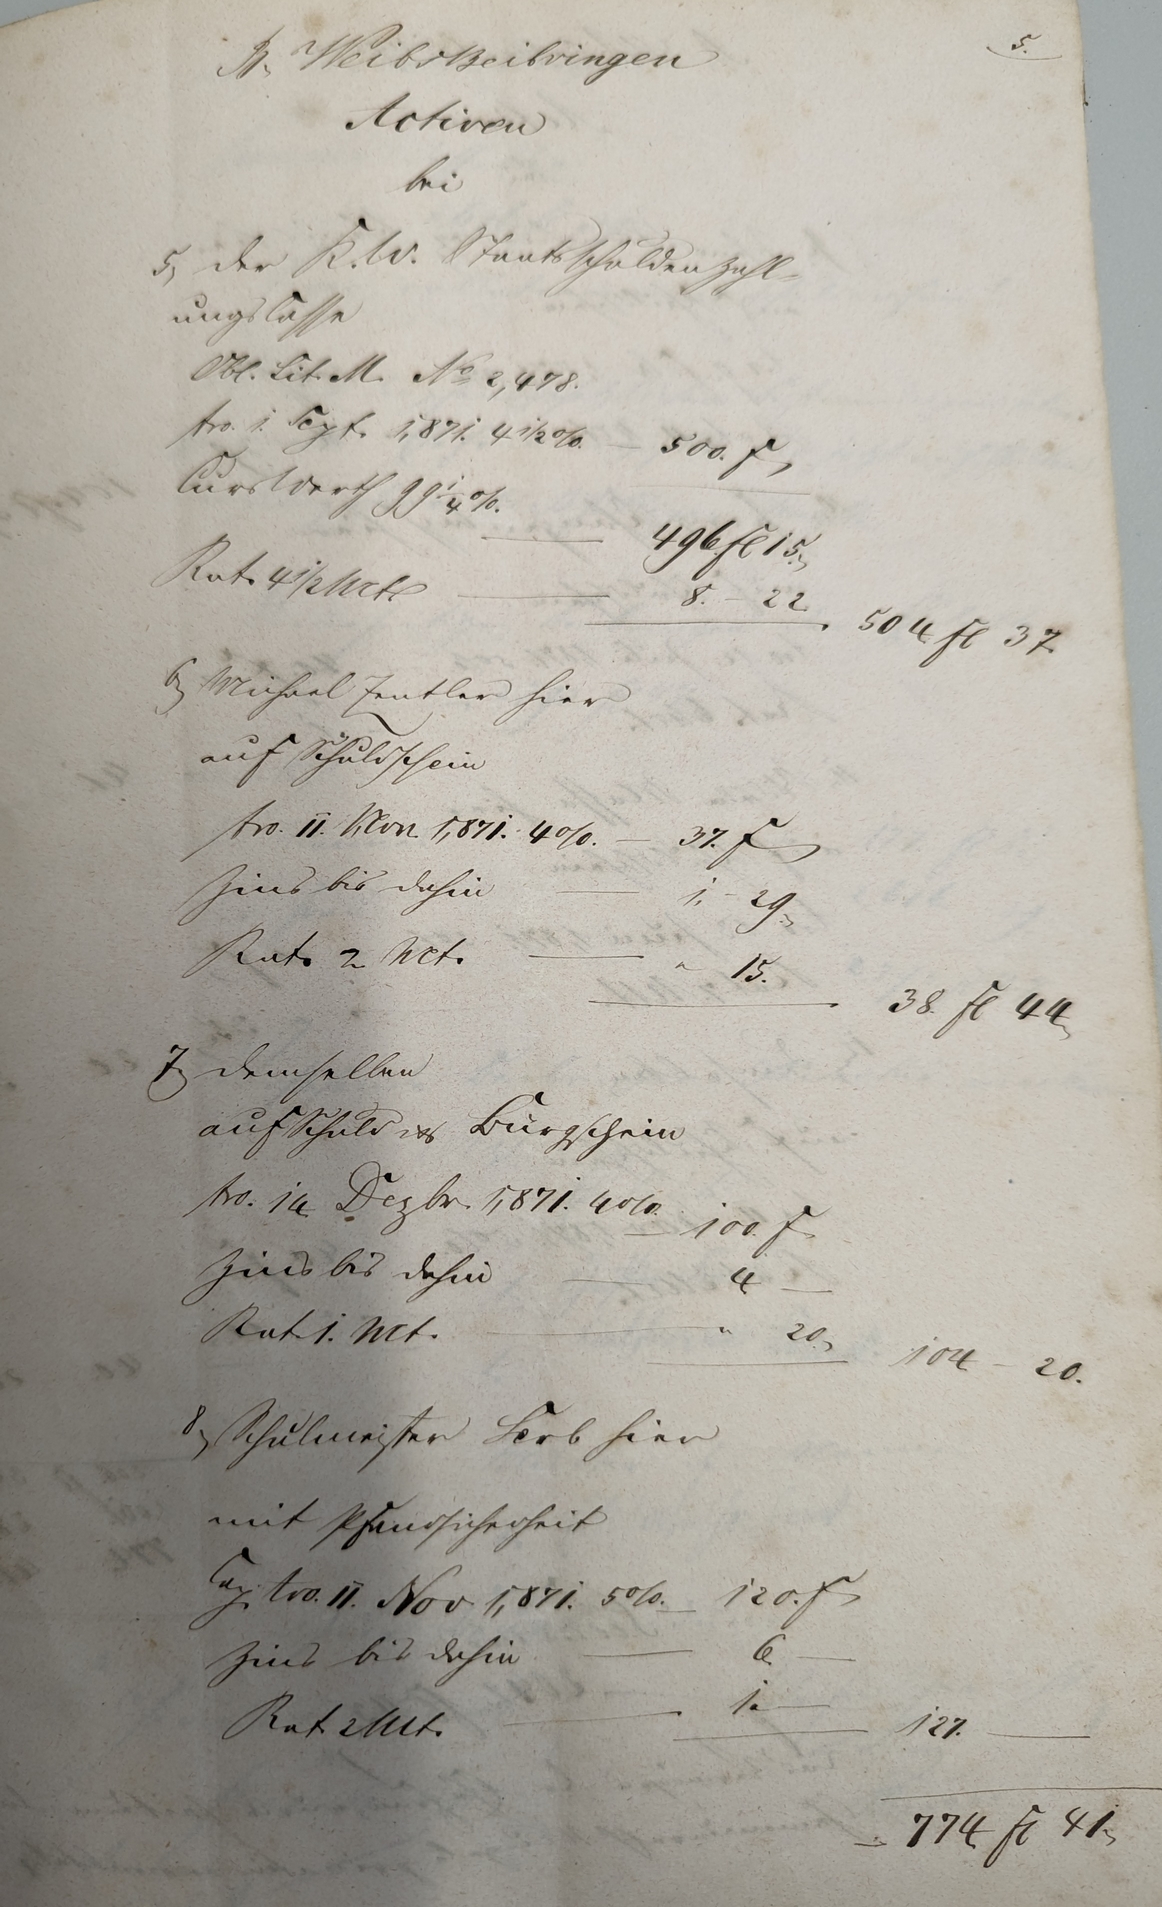 5.
B. Weibsbeibringen
Activen
bei
5, der K. W. Staatsschuldenzahl-
ungs Casse
Obl. Lit. M. No 2,478.
tro. 1. Sept. 1,871. 4 1/2 %. — 500. f,
Curs Werth 99 1/4 %.
— 496 fl 15,
Rat. 4 1/2 Mt — 8. - 22. 504 fl 37.
6, Michael hier
auf Schuldschein
tro. 11. Nov. 1,871. 4 %. — 37. f,
Zins bis dahin — 1, - 29,
Rat. 2 Mt. — " 15. 38. fl 44,
7, demselben
auf Schuld u. Bürgschein
tro. 14. Dezbr. 1,871. 4 %. — 100. f.
Zins bis dahin — 4 —
Rat. 1. Mt. — " 20, 104 - 20.
8, Schulmeister hier
mit Pfandsicherheit
Cap. tro. 11. Nov. 1,871. 5 %. — 120. f,
Zins bis dahin — 6. —
Rat. 2 Mt. — 1. — 127. —
= 774 fl 41,